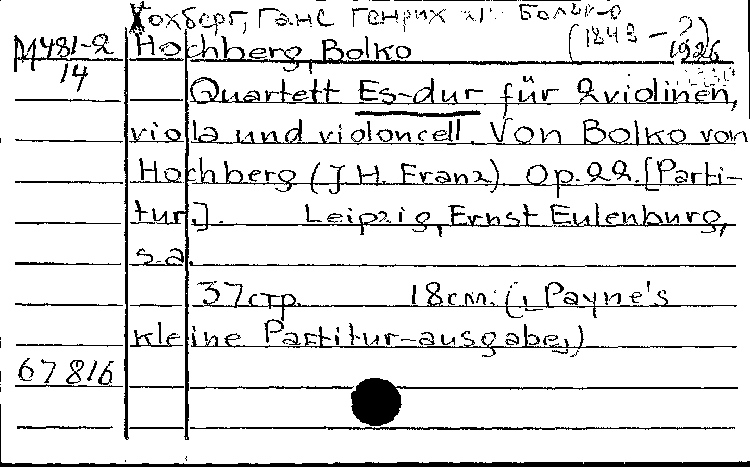 Хохберг, Ганс Генрих
(1843 - ?)
1926
М481-2 Hochberg, Bolko
14
Quartett Es-dur für 2 violinen,
viola und violoncell. Von Bolko von
Hochberg (J.H. Franz) Op. 22. [Parti-
tur.]. Leipzig, Ernst Eulenburg,
s.a.
37 стр. 18 см. („Payne's
kleine Partitur-ausgabe„)
67816